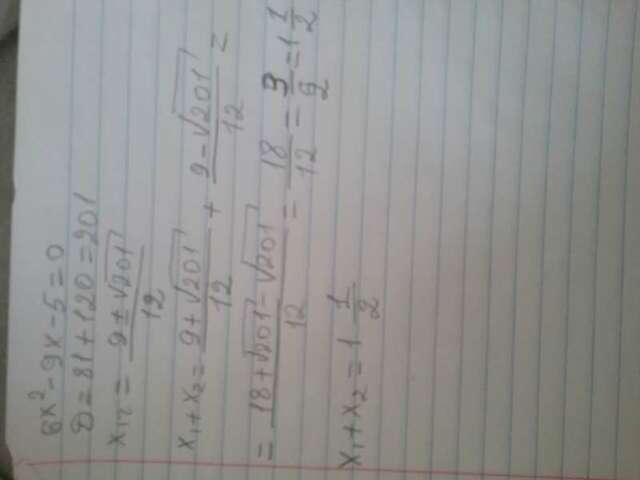 6x²-9x-5=0
D=81+120=201
x₁₂ = (9±√201)/12
x₁+x₂ = (9+√201)/12 + (9-√201)/12 =
= (18+√201-√201)/12 = 18/12 = 3/2 = 1 1/2
x₁+x₂ = 1 1/2